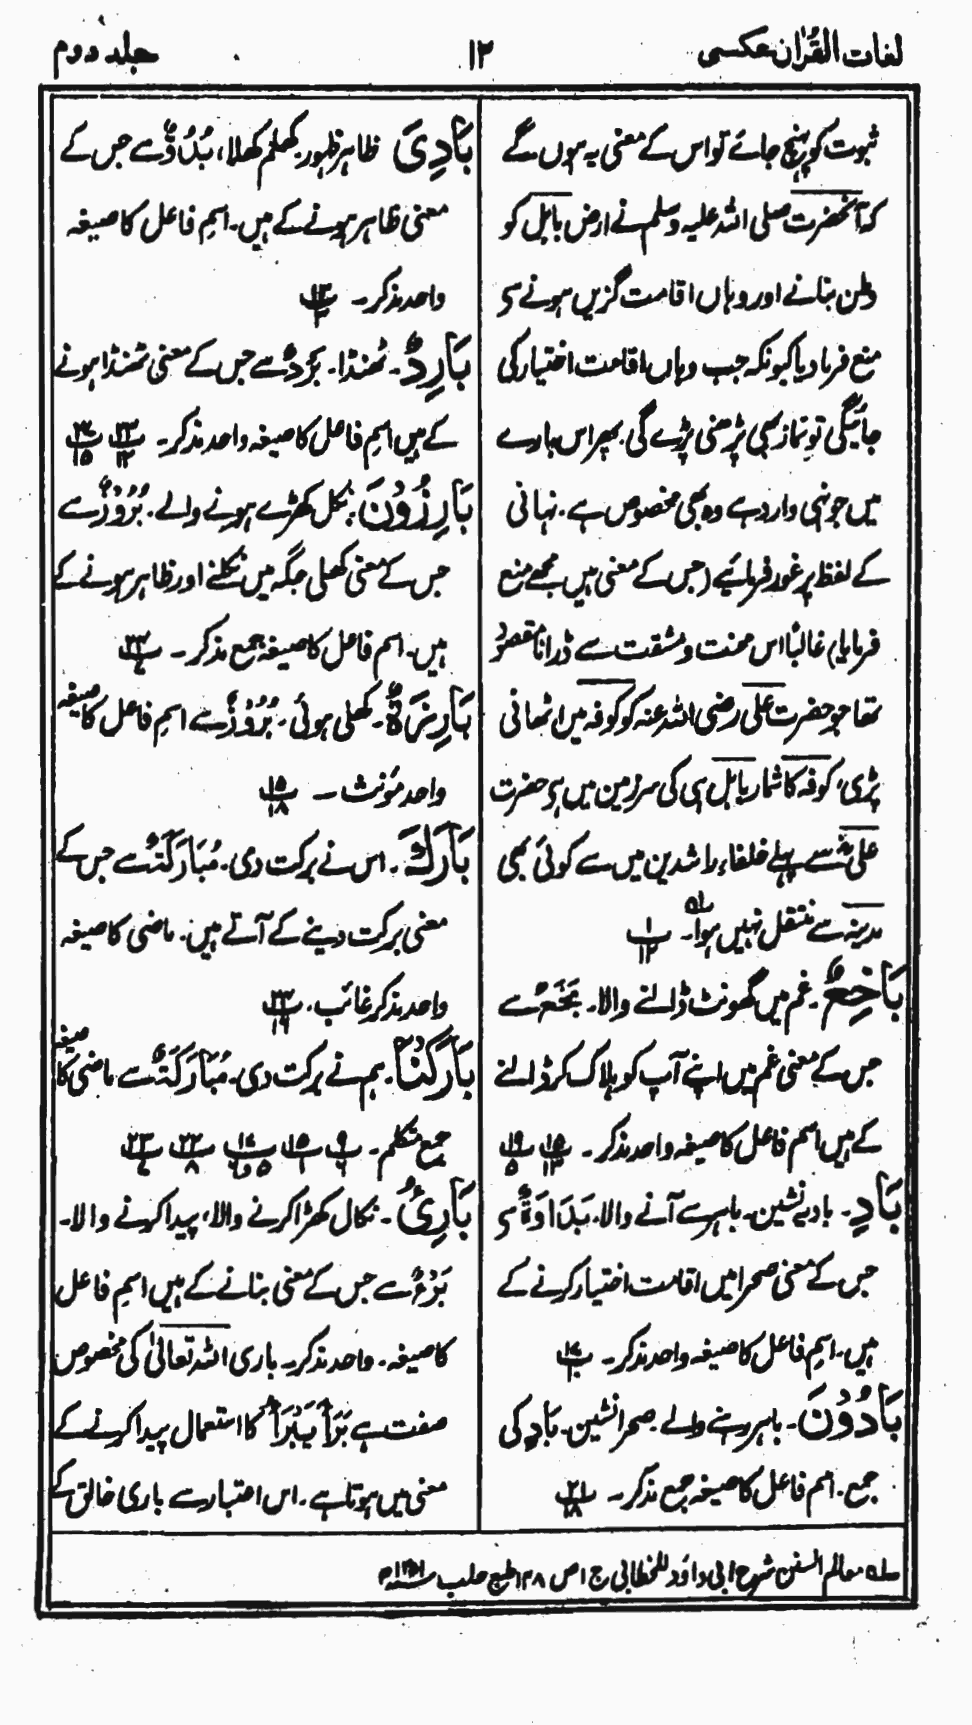 لغات القرآن عکسی
۱۲
جلد دوم
ثبوت کو پہنچ جائے تو اس کے معنی یہ ہوں گے
کہ آنحضرت صلی اللہ علیہ وسلم نے ارض بابل کو
وطن بنانے اور وہاں اقامت گزیں ہونے سے
منع فرما دیا کیونکہ جب وہاں اقامت اختیار کی
جائیگی تو نماز بھی پڑھنی پڑے گی. پھر اس بارے
میں جو نہی وارد ہے وہ بھی مخصوص ہے. نہانی
کے لفظ پر غور فرمائیے (جس کے معنی ہیں مجھے منع
فرمایا) غالبًا اس محنت و مشقت سے ڈرانا مقصود
تھا جو حضرت علی رضی اللہ عنہ کو کوفہ میں اٹھانی
پڑی، کوفہ کا شمار بابل ہی کی سرزمین میں ہے حضرت
علیؓ سے پہلے خلفاء راشدین میں سے کوئی بھی
مدینہ سے منتقل نہیں ہوا۔ ؎۱ ۱/۱۲
بَاخِعٌ۔ غم میں گھونٹ ڈالنے والا۔ بَخْعٌ سے
جس کے معنی غم میں اپنے آپ کو ہلاک کر ڈالنے
کے ہیں اسم فاعل کا صیغہ واحد مذکر۔ ۱۵/۱۳ ۱۹/۵
بَادٍ۔ بادیہ نشین۔ باہر سے آنے والا. بَدَاوَةٌ سے
جس کے معنی صحرا میں اقامت اختیار کرنے کے
ہیں۔ اسمِ فاعل کا صیغہ واحد مذکر۔ ۱۷/۱۰
بَادُوْنَ۔ باہر رہنے والے. صحرا نشین۔ بَادٍ کی
جمع. اسم فاعل کا صیغہ جمع مذکر۔ ۲۱/۱۸
بَادِیَ ظاہر ظہور. کھلم کھلا، بُدُوٌّ سے جس کے
معنی ظاہر ہونے کے ہیں۔ اسمِ فاعل کا صیغہ
واحد مذکر۔ ۱۲/۳
بَارِدٌ۔ ٹھنڈا۔ بَرْدٌ سے جس کے معنی ٹھنڈا ہونے
کے ہیں اسمِ فاعل کا صیغہ واحد مذکر۔ ۲۳/۱۲ ۲۷/۱۵
بَارِزُوْنَ۔ نکل کھڑے ہونے والے. بُرُوْزٌ سے
جس کے معنی کھلی جگہ میں نکلنے اور ظاہر ہونے کے
ہیں۔ اسم فاعل کا صیغہ جمع مذکر۔ ۲۴/۷
بَارِزَةً۔ کھلی ہوئی۔ بُرُوْزٌ سے اسمِ فاعل کا صیغہ
واحد مؤنث ۔ ۱۵/۱۸
بَارَكَ۔ اس نے برکت دی۔ مُبَارَكَةٌ سے جس کے
معنی برکت دینے کے آتے ہیں. ماضی کا صیغہ
واحد مذکر غائب. ۲۴/۱۶
بَارَكْنَا۔ ہم نے برکت دی۔ مُبَارَكَةٌ سے ماضی کا صیغہ
جمع متکلم۔ ۹/۶ ۱۵/۱ ۱۷/۵و۶ ۲۲/۸ ۲۳/۷
بَارِئٌ۔ نکال کھڑا کرنے والا، پیدا کرنے والا۔
بَرْءٌ سے جس کے معنی بنانے کے ہیں اسمِ فاعل
کا صیغہ۔ واحد مذکر۔ باری اللہ تعالیٰ کی مخصوص
صفت ہے بَرَأَ يَبْرَأُ کا استعمال پیدا کرنے کے
معنی میں ہوتا ہے۔ اس اعتبار سے باری خالق کے
؎۱ معالم السنن شرح ابی داؤد للخطابی ج ۱ ص ۱۴۸ طبع حلب ۱۳۵۱ھ